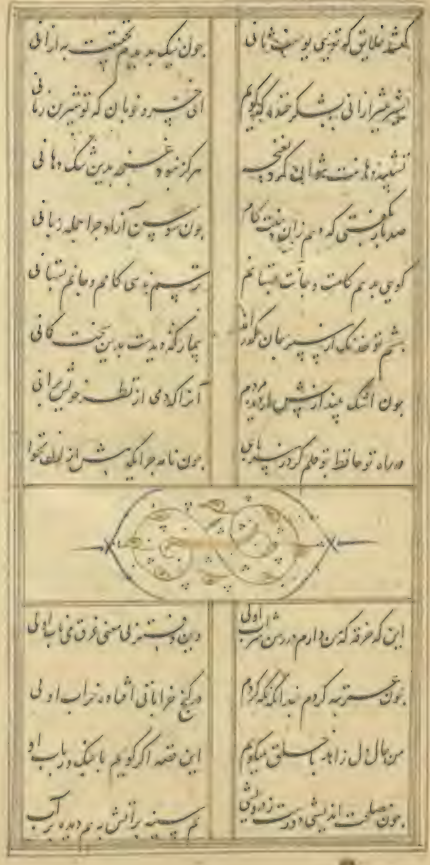 گفتند خلایق که تویی یوسف ثانی
چون نیک بدیدم بحقیقت به ازانی
شیرین‌تر ازانی بشکر خنده که گویم
ای خسرو خوبان که تو شیرین زمانی
تشبیه دهانت نتوان کرد بغنچه
هرگز نبود غنچه بدین تنگ دهانی
صد بار بگفتی که دهم زان دهنت کام
چون سوسن آزاد چرا جمله زبانی
گویی بدهم کامت و جانت بستانم
ترسم ندهی کامم و جانم بستانی
چشم تو خدنگ از سپر جان گذراند
بیمار که دیدست بدین سخت کمانی
چون اشک بیندازیش از دیده مردم
آنرا که دمی از نظر خویش برانی
در راه تو حافظ چو قلم کرد ز سر پای
چون نامه چرا یکدمش از لطف نخوانی
این که خرقه که من دارم در رهن شراب اولی
وین دفتر بی معنی غرق می ناب اولی
چون عمر تبه کردم چندانکه نگه کردم
در کنج خراباتی افتاده خراب اولی
من حال دل زاهد با خلق نمیگویم
این قصه اگر گویم با چنگ و رباب اولی
چون مصلحت اندیشی دورست ز درویشی
هم سینه پر آتش به هم دیده پر آب